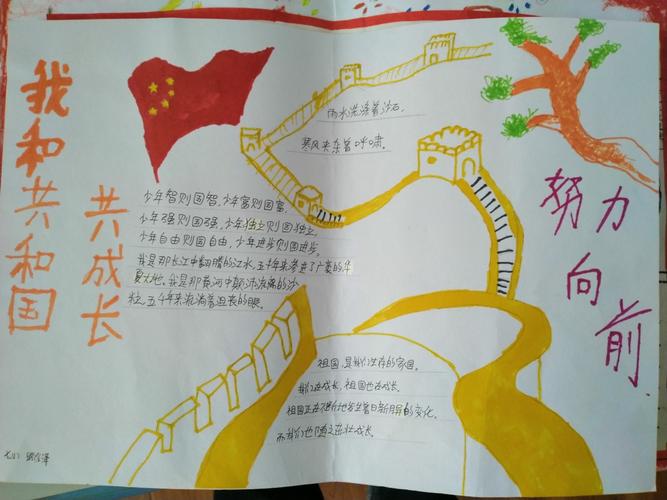 我和共和国
共成长
雨水洗涤着沙石,
寒风夹杂着呼啸。
少年智则国智,少年富则国富,
少年强则国强,少年独立则国独立,
少年自由则国自由,少年进步则国进步。
我是那长江中翻腾的江水,五千年来渗进了广袤的华
夏大地。我是那黄河中颠沛流离的沙
粒,五千年来流淌着追长的眼。
祖国,是我们生存的家园。
我们在成长,祖国也在成长。
祖国正在不断地发生着日新月异的变化。
而我们也随之茁壮成长。
努力
向
前
七(1)